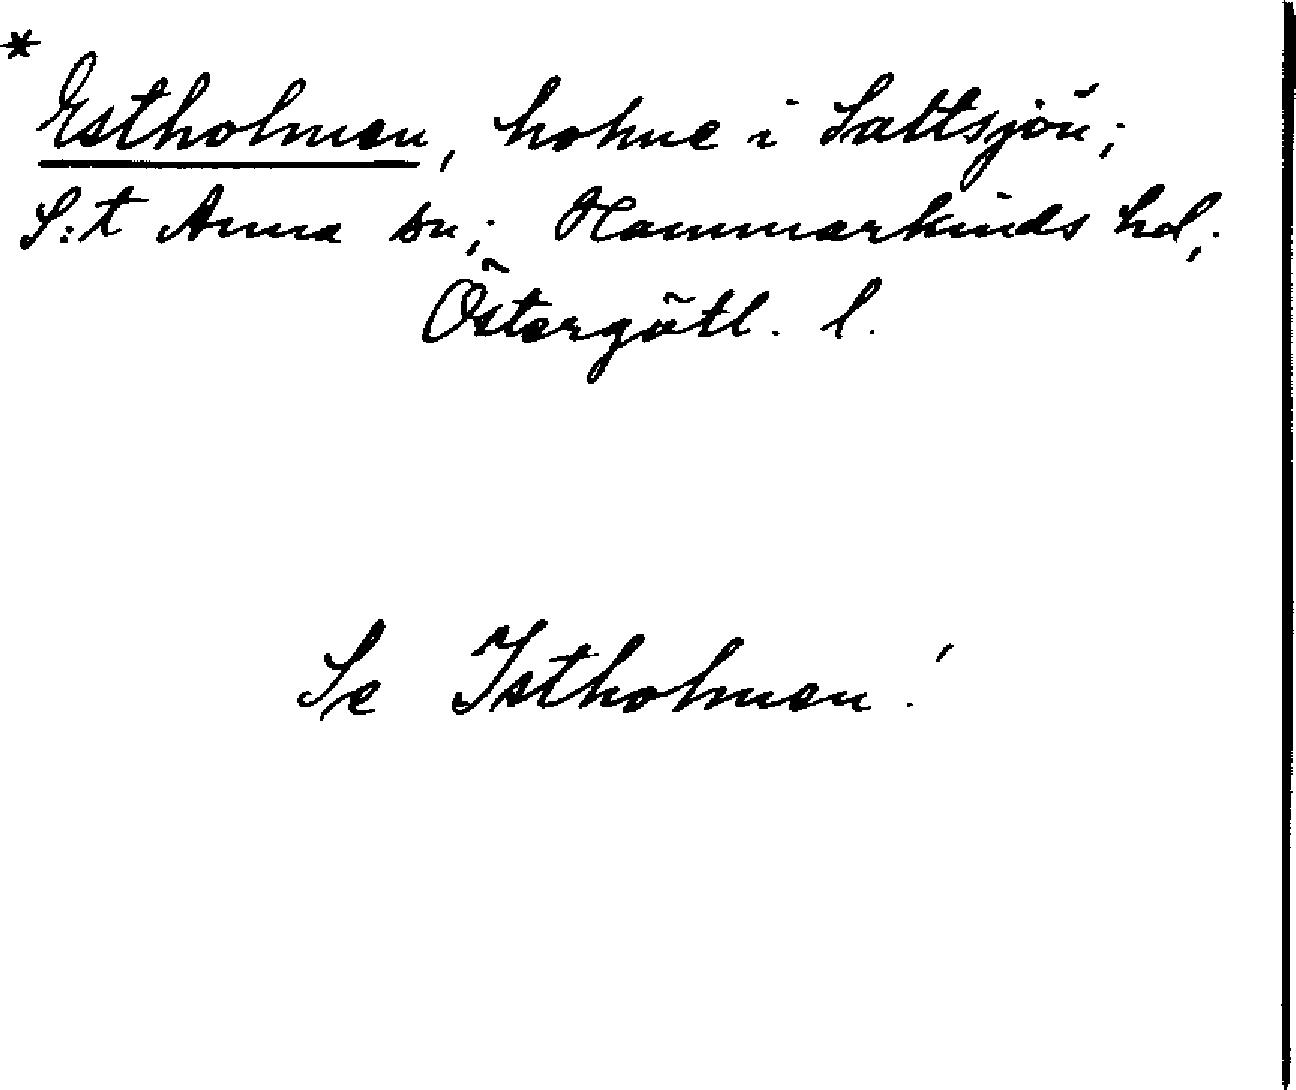 * Estholmen, holme i Saltsjön;
S:t Anna sn; Hammarkinds hd;
Östergötl. l.
Se Istholmen!